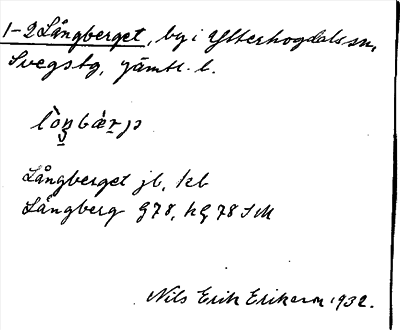 1-2 Långberget, by i Ytterhogdals sn,
Svegs tg, Jämtl. l.
Långberget jb, kb
Långberg G78, kG 78 SM
Nils Erik Erikson 1932.